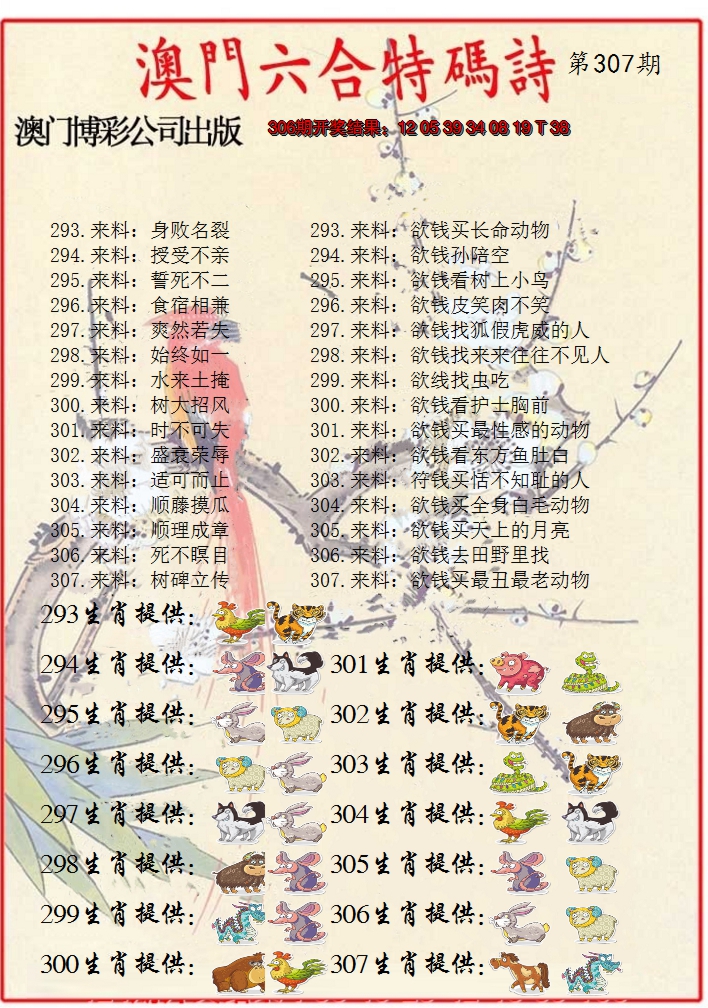 澳門六合特碼詩 第307期
澳门博彩公司出版 306期开奖结果：12 05 39 34 08 19 T 36
293.来料：身败名裂 293.来料：欲钱买长命动物
294.来料：授受不亲 294.来料：欲钱孙陪空
295.来料：誓死不二 295.来料：欲钱看树上小鸟
296.来料：食宿相兼 296.来料：欲钱皮笑肉不笑
297.来料：爽然若失 297.来料：欲钱找狐假虎威的人
298.来料：始终如一 298.来料：欲钱找来来往往不见人
299.来料：水来土掩 299.来料：欲线找虫吃
300.来料：树大招风 300.来料：欲钱看护士胸前
301.来料：时不可失 301.来料：欲钱买最性感的动物
302.来料：盛衰荣辱 302.来料：欲钱看东方鱼肚白
303.来料：适可而止 303.来料：符钱买恬不知耻的人
304.来料：顺藤摸瓜 304.来料：欲钱买全身白毛动物
305.来料：顺理成章 305.来料：欲钱买天上的月亮
306.来料：死不瞑目 306.来料：欲钱去田野里找
307.来料：树碑立传 307.来料：欲钱买最丑最老动物
293生肖提供：
294生肖提供： 301生肖提供：
295生肖提供： 302生肖提供：
296生肖提供： 303生肖提供：
297生肖提供： 304生肖提供：
298生肖提供： 305生肖提供：
299生肖提供： 306生肖提供：
300生肖提供： 307生肖提供：